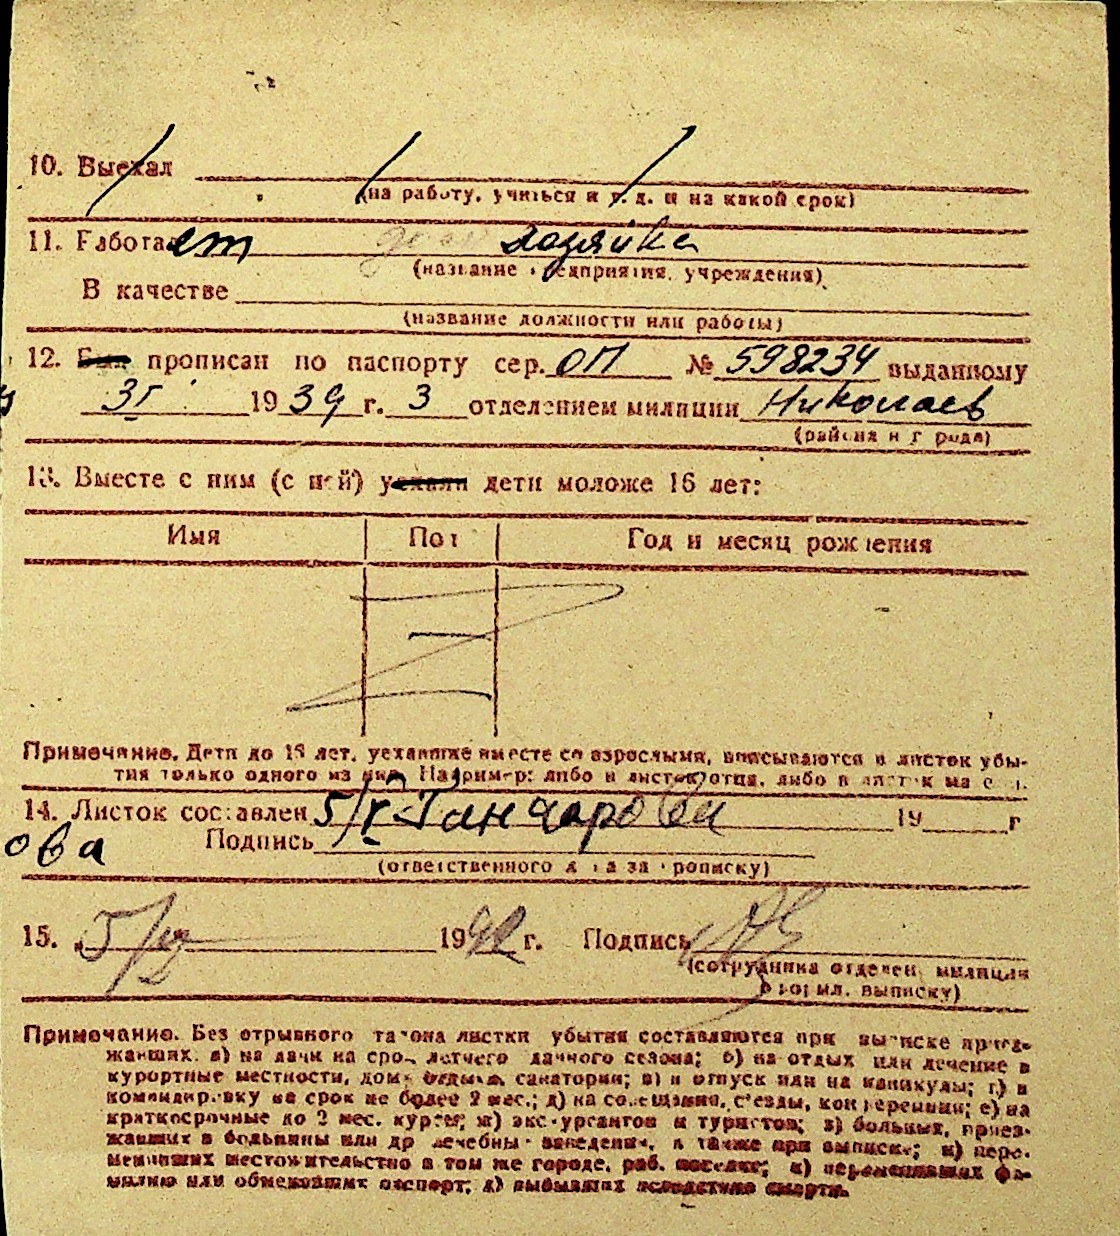 10. Выехал
(на работу, учиться и т. д. и на какой срок)
11. Работает хозяйка
(название предприятия, учреждения)
В качестве
(название должности или работы)
12. прописан по паспорту сер. ОП № 598234 выданному
31 1939 г. 3 отделением милиции Николаев
(района и города)
13. Вместе с ним (с ней) уехали дети моложе 16 лет:
Имя Пол Год и месяц рождения
Примечание. Дети до 16 лет, уехавшие вместе со взрослыми, вписываются в листок убы-
тия только одного из них. Например: либо в листок отца, либо в листок матери.
14. Листок составлен 5/V Ганчарова 19 г
ова Подпись
(ответственного лица за прописку)
15. 5/ 19 г. Подпись
(сотрудника отделен. милиции
оформил. выписку)
Примечание. Без отрывного талона листки убытия составляются при выписке приез-
жавших: а) на дачи на срок летнего дачного сезона; б) на отдых или лечение в
курортные местности, дома отдыха, санатории; в) в отпуск или на каникулы; г) в
командировку на срок не более 2 мес.; д) на совещания, съезды, конференции; е) на
краткосрочные до 2 мес. курсы; ж) экскурсантов и туристов; з) больных, приез-
жавших в больницы или др лечебные заведения, а также при выписке; и) пере-
менивших местожительство в том же городе, раб. поселке; к) переменивших фа-
милию или обменявших паспорт; л) выбывших вследствие смерти.